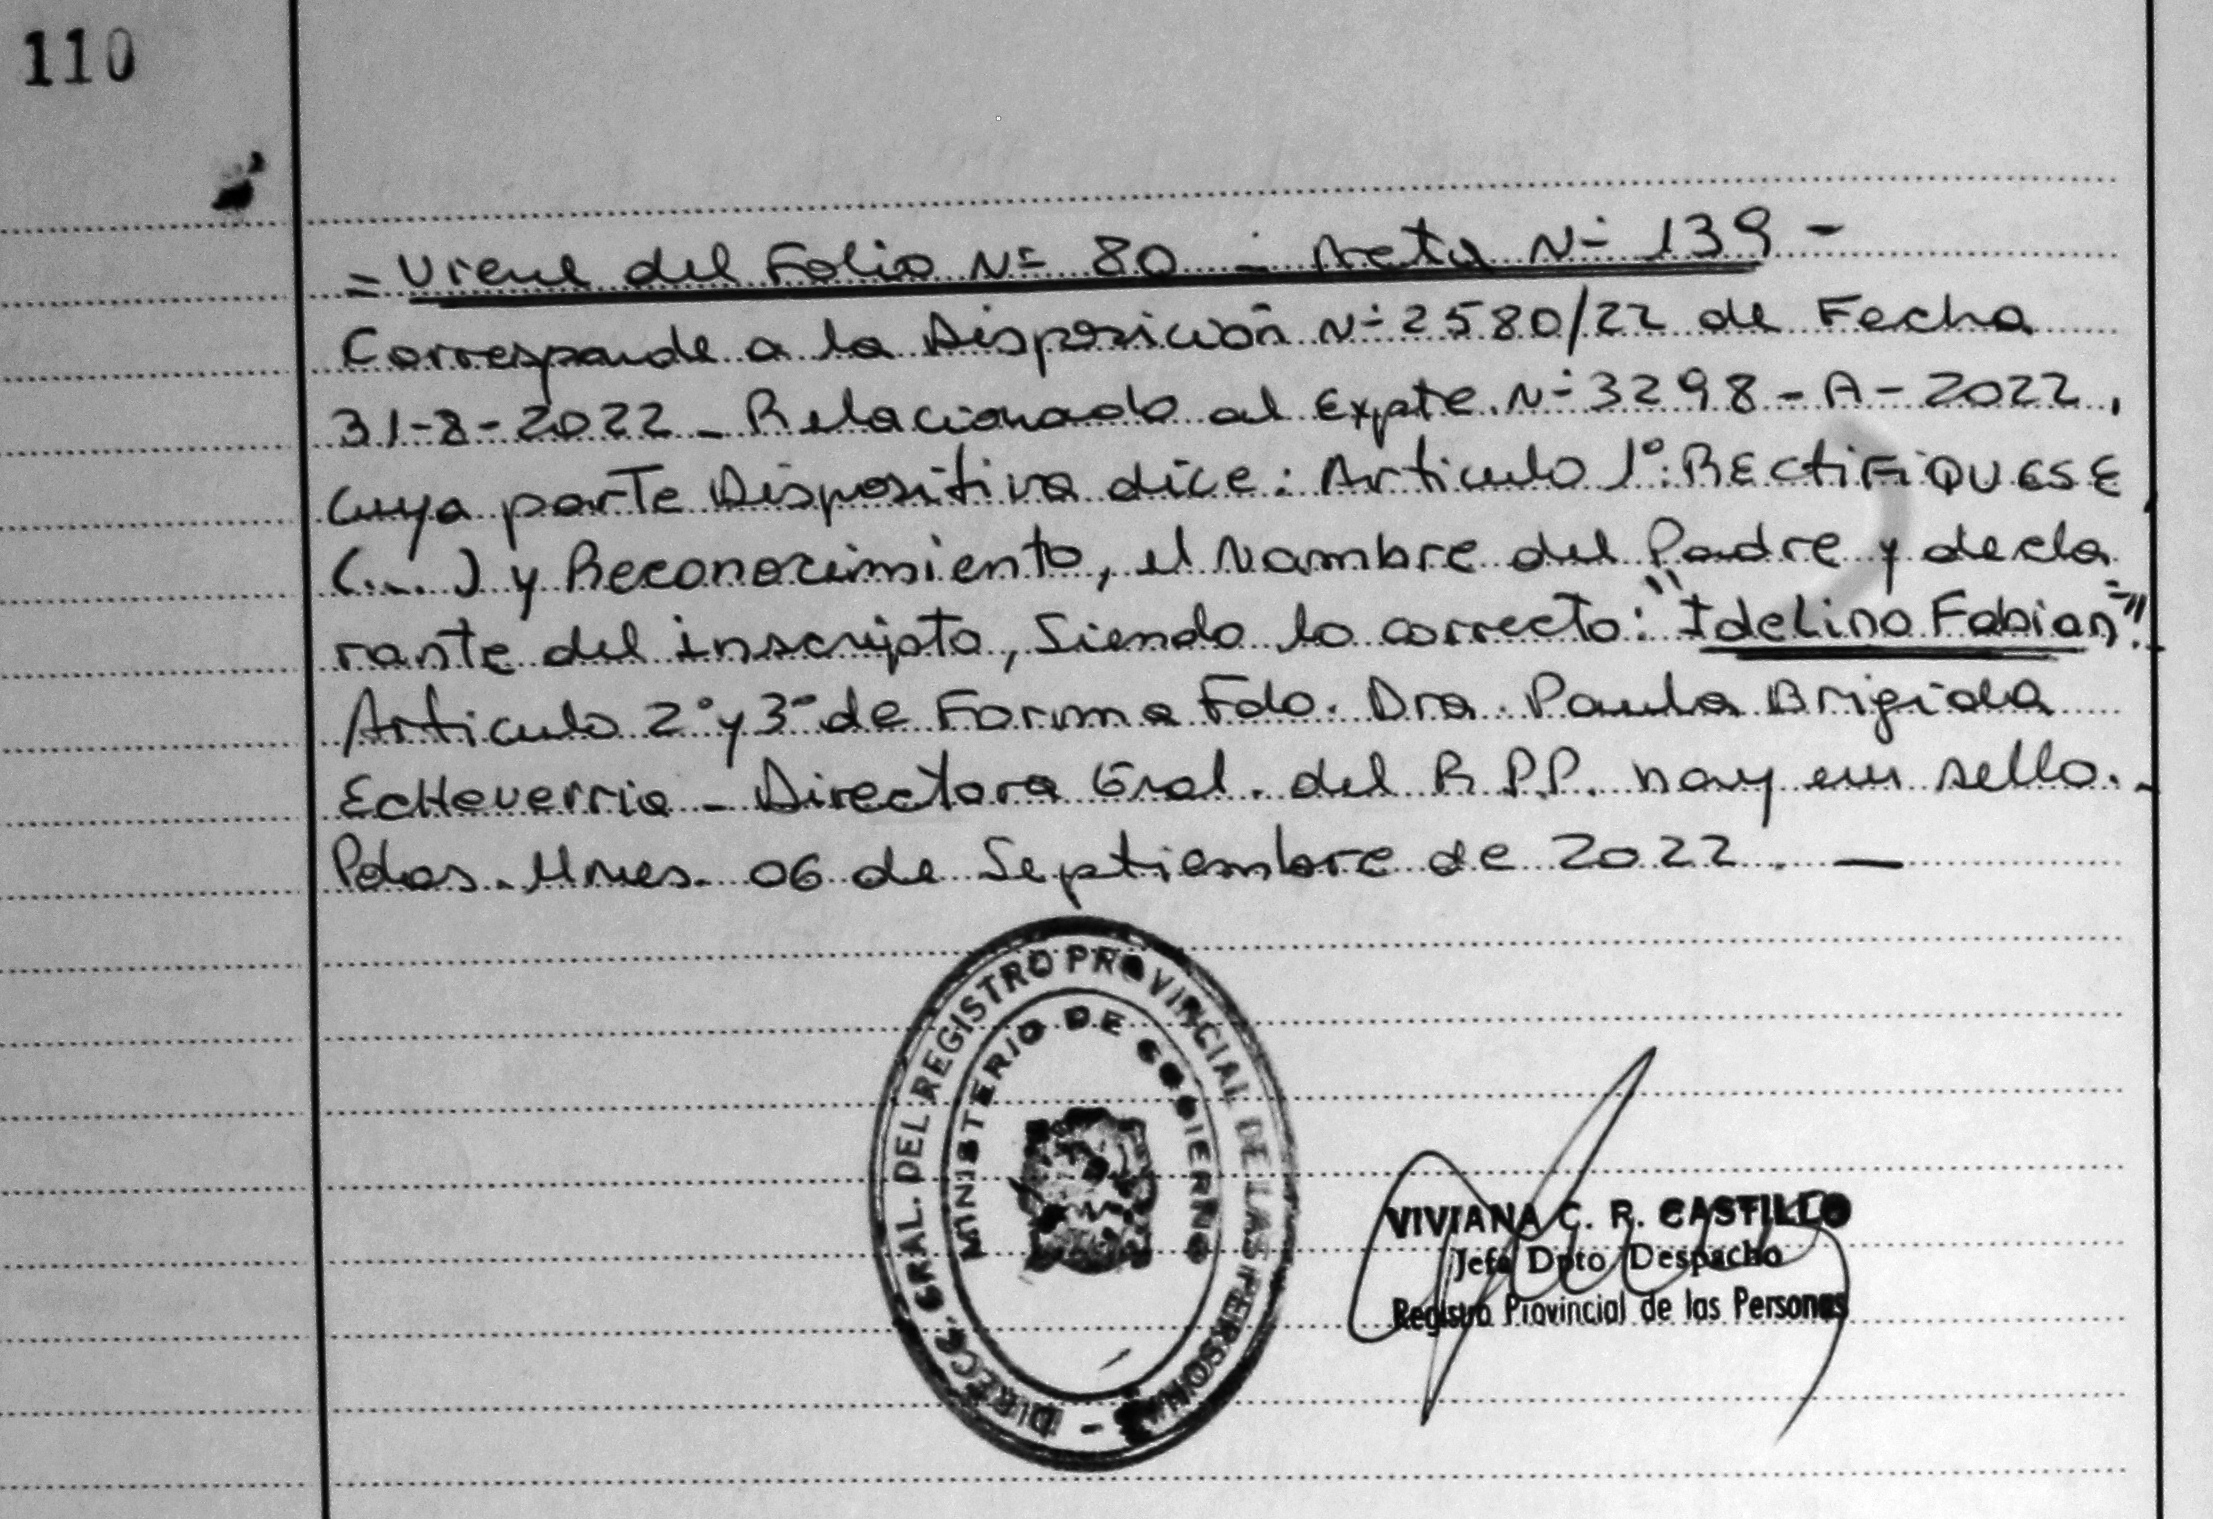 110
= Viene del Folio Nº 80 - Acta Nº 139 -
Corresponde a la Disposición Nº 2580/22 de Fecha
31-8-2022 - Relacionado al Expte. Nº 3298 - A - 2022,
Cuya parte Dispositiva dice: Articulo 1º: RECTIFIQUESE
(...) y Reconocimiento, el Nombre del Padre y decla
rante del inscripto, Siendo lo correcto: "Idelino Fabian".
Articulo 2º y 3º de Forma Fdo. Dra. Paula Brigida
Echeverria - Directora Gral. del R.P.P. hay un sello. -
Pdas. Mnes. 06 de Septiembre de 2022. —
DIRECC. GRAL. DEL REGISTRO PROVINCIAL DE LAS PERSONAS -
MINISTERIO DE GOBIERNO
VIVIANA C. R. CASTILLO
Jefe Dpto Despacho
Registro Provincial de las Personas